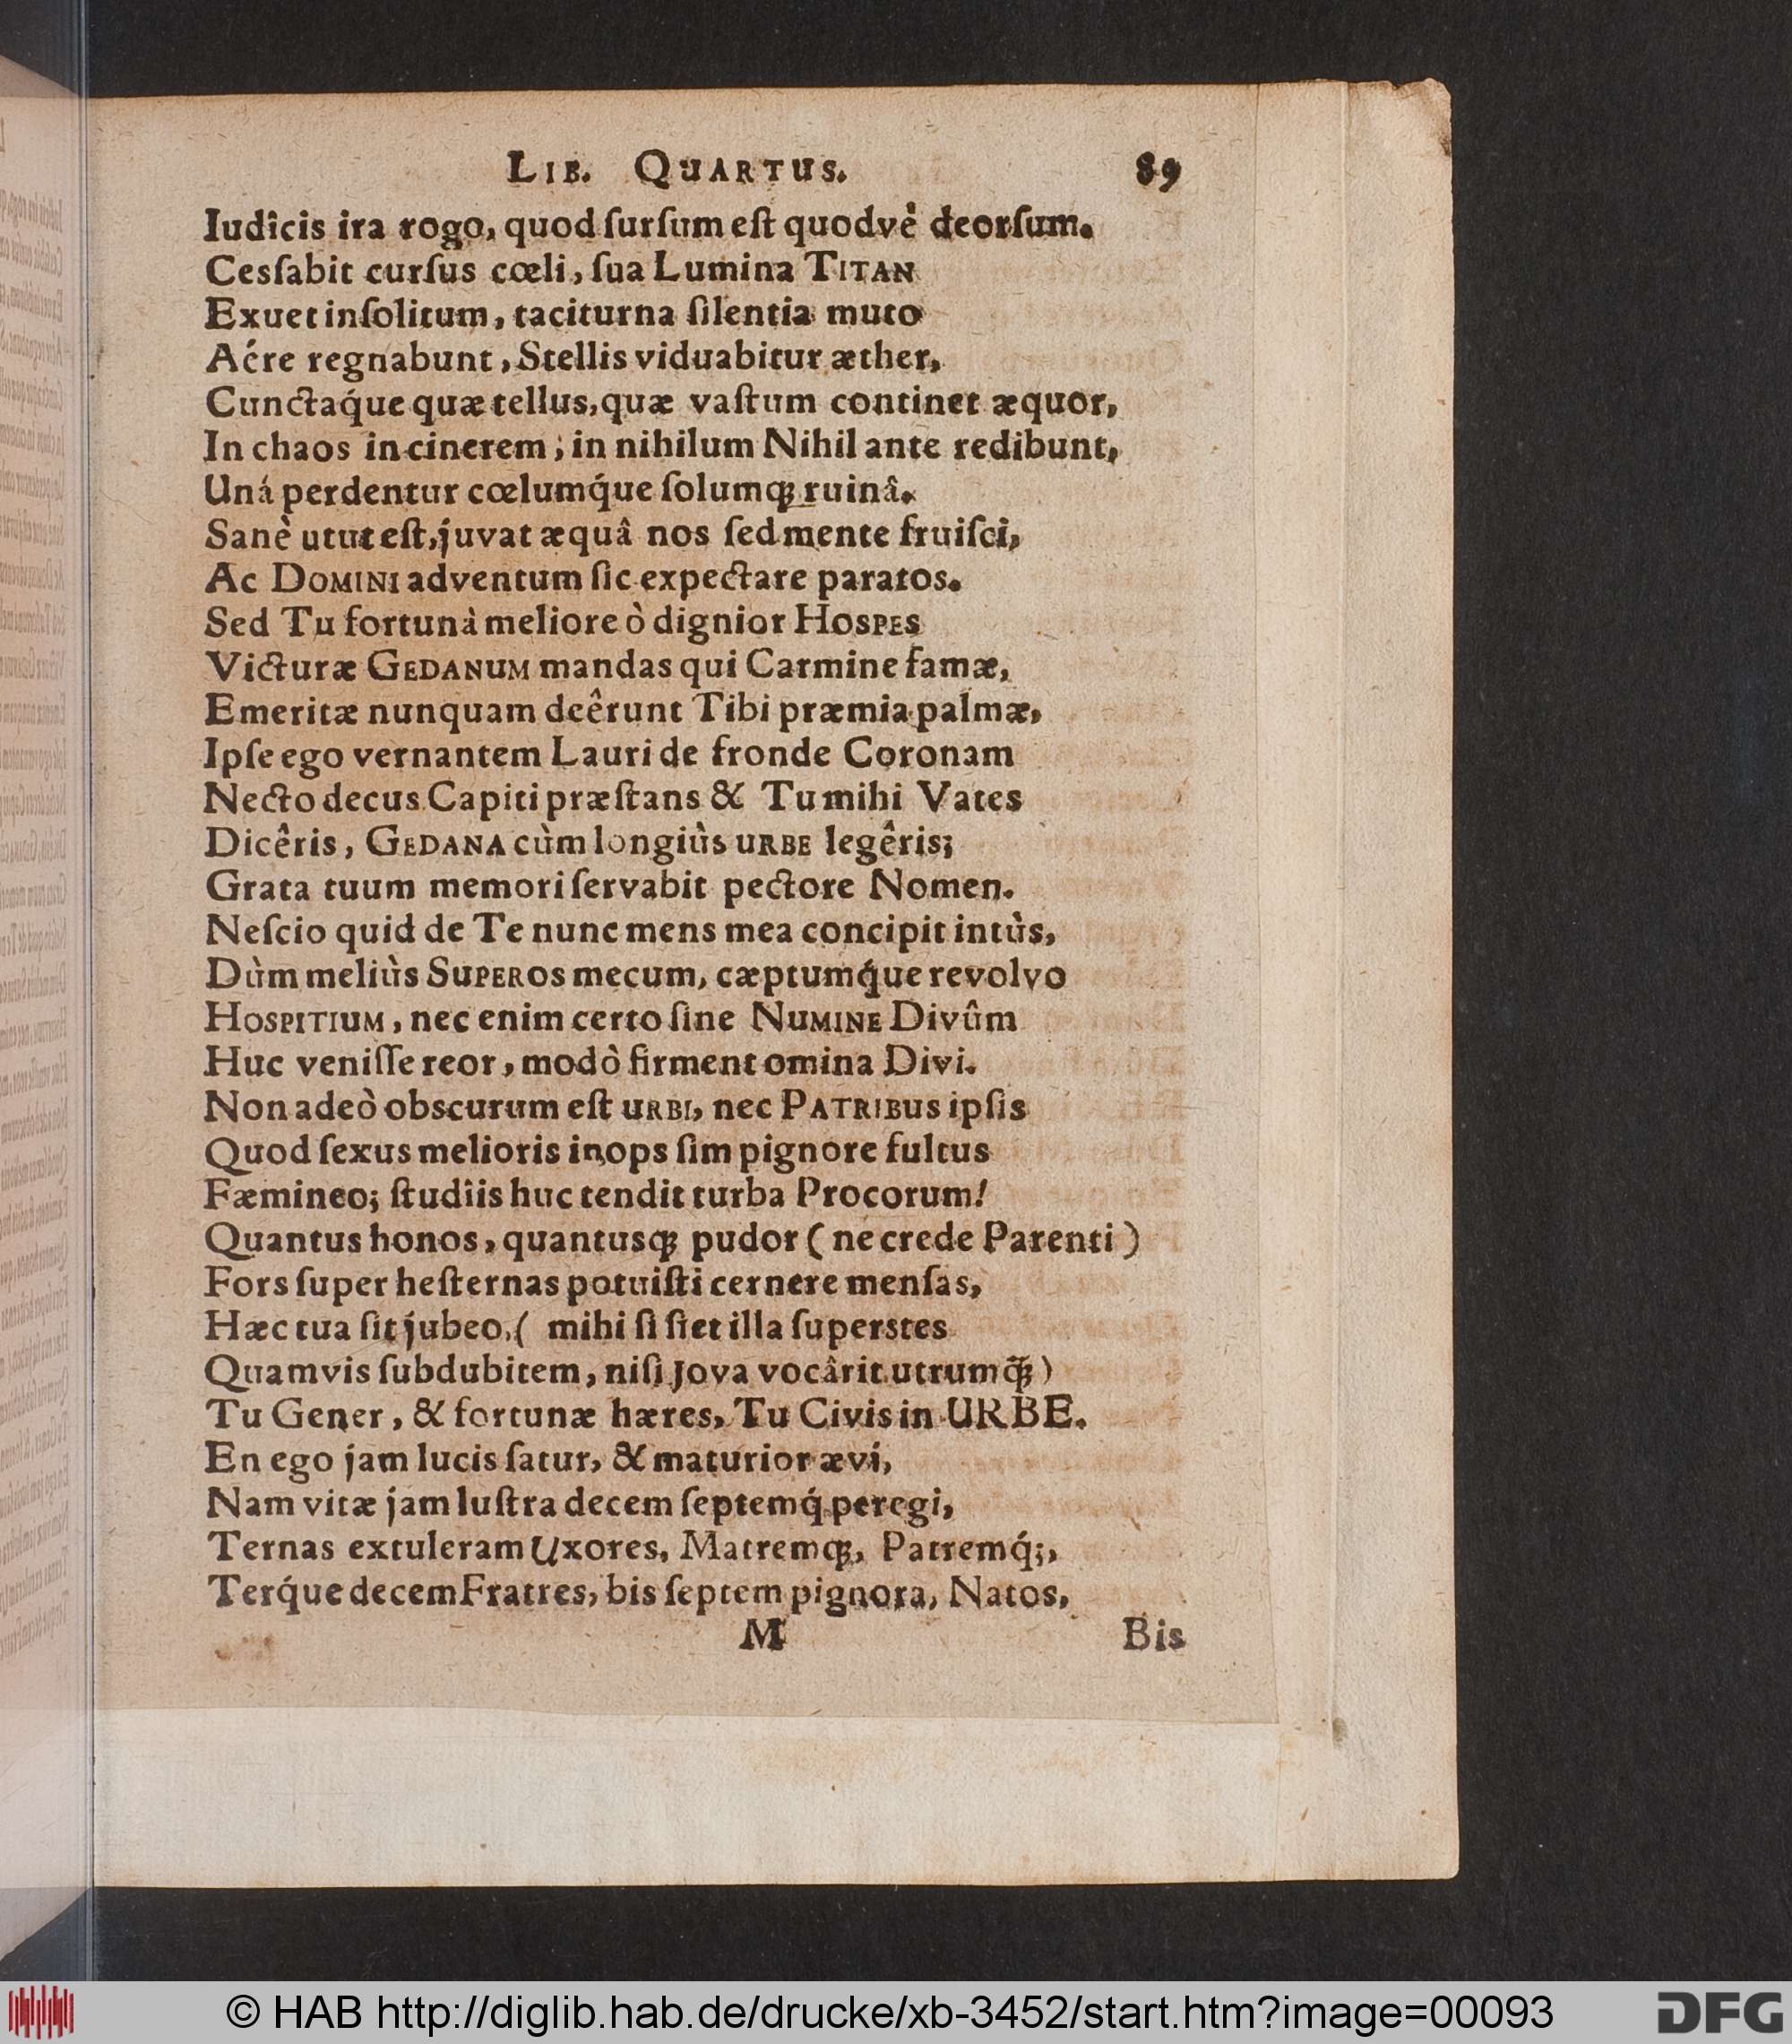 LIB. QUARTUS. 89
Iudîcis ira rogo, quod ſurſum eſt quodvè deorſum.
Cesſabit curſus cœli, ſua Lumina TITAN
Exuet inſolitum, taciturna ſilentia muto
Aére regnabunt, Stellis viduabitur æther,
Cunctaq́ue quæ tellus, quæ vaſtum continet æquor,
In chaos in cinerem; in nihilum Nihil ante redibunt,
Uná perdentur cœlumq́ue ſolumq; ruinâ.
Sanè utut eſt, juvat æquâ nos ſed mente fruiſci,
Ac DOMINI adventum ſic expectare paratos.
Sed Tu fortunà meliore ò dignior HOSPES
Victuræ GEDANUM mandas qui Carmine famæ,
Emeritæ nunquam deêrunt Tibi præmia palmæ,
Ipſe ego vernantem Lauri de fronde Coronam
Necto decus Capiti præſtans & Tu mihi Vates
Dicêris, GEDANA cùm longiùs URBE legêris;
Grata tuum memori ſervabit pectore Nomen.
Neſcio quid de Te nunc mens mea concipit intùs,
Dùm meliùs SUPEROS mecum, cæptumq́ue revolvo
HOSPITIUM, nec enim certo ſine NUMINE Divûm
Huc veniſſe reor, modò firment omina Divi.
Non adeò obscurum eſt URBI, nec PATRIBUS ipſis
Quod ſexus melioris inops ſim pignore fultus
Fæmineo; ſtudîis huc tendit turba Procorum!
Quantus honos, quantusq; pudor ( ne crede Parenti )
Fors ſuper heſternas potuiſti cernere menſas,
Hæc tua ſit jubeo, ( mihi ſi ſiet illa ſuperstes
Quamvis ſubdubitem, niſi Jova vocârit utrumq;)
Tu Gener, & fortunæ hæres, Tu Civis in URBE.
En ego jam lucis ſatur, & maturior ævi,
Nam vitæ jam luſtra decem ſeptemq́ peregi,
Ternas extuleram Uxores, Matremq;, Patremq́;,
Terq́ue decem Fratres, bis ſeptem pignora, Natos,
M Bis
© HAB http://diglib.hab.de/drucke/xb-3452/start.htm?image=00093
DFG